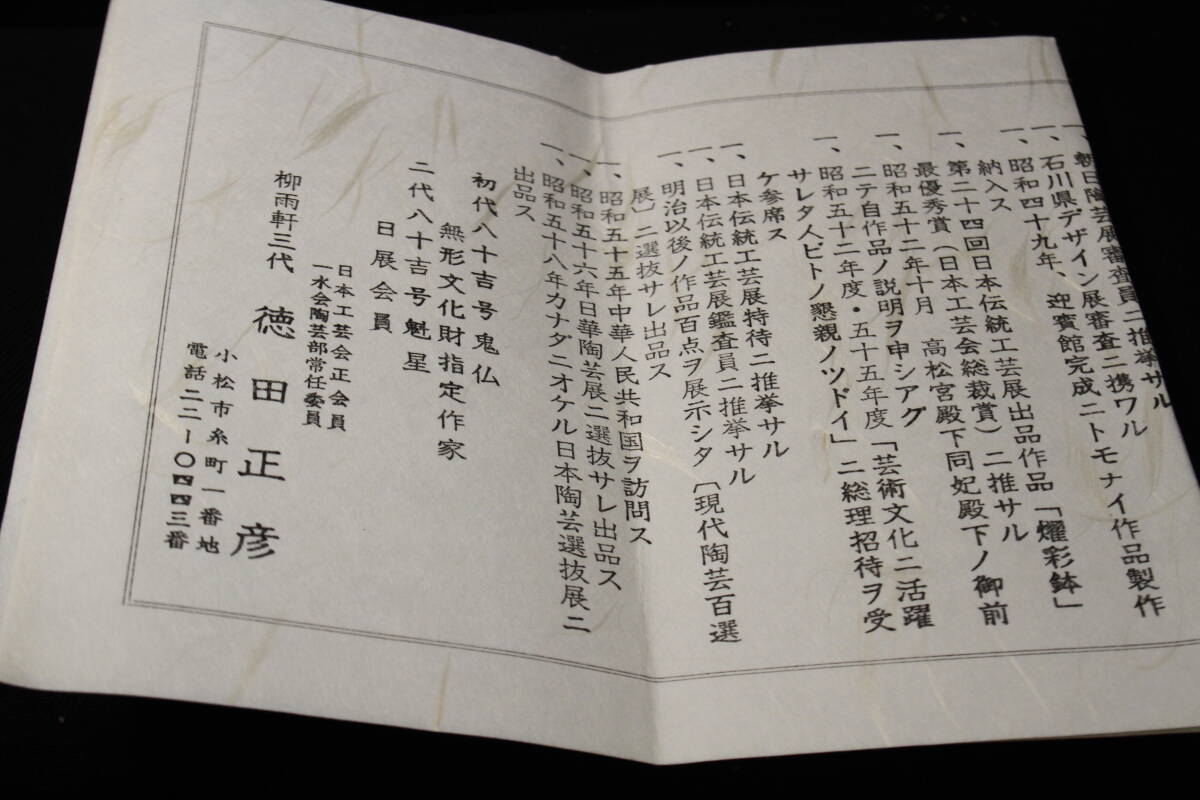 一、朝日陶芸展審査員ニ推挙サル
一、石川県デザイン展審査ニ携ワル
一、昭和四十九年、迎賓館完成ニトモナイ作品製作
納入ス
一、第二十四回日本伝統工芸展出品作品「燿彩鉢」
最優秀賞（日本工芸会総裁賞）ニ推サル
一、昭和五十二年十月　高松宮殿下同妃殿下ノ御前
ニテ自作品ノ説明ヲ申シアグ
一、昭和五十二年度・五十五年度「芸術文化ニ活躍
サレタ人ビトノ懇親ノツドイ」ニ総理招待ヲ受
ケ参席ス
一、日本伝統工芸展特待ニ推挙サル
一、日本伝統工芸展鑑査員ニ推挙サル
一、明治以後ノ作品百点ヲ展示シタ〔現代陶芸百選
展」ニ選抜サレ出品ス
一、昭和五十五年中華人民共和国ヲ訪問ス
一、昭和五十六年日華陶芸展ニ選抜サレ出品ス
一、昭和五十八年カナダニオケル日本陶芸選抜展ニ
出品ス
初代八十吉号鬼仏
無形文化財指定作家
二代八十吉号魁星
日展会員
日本工芸会正会員
一水会陶芸部常任委員
柳雨軒三代　徳田正彦
小松市糸町一番地
電話二二ー〇四四三番